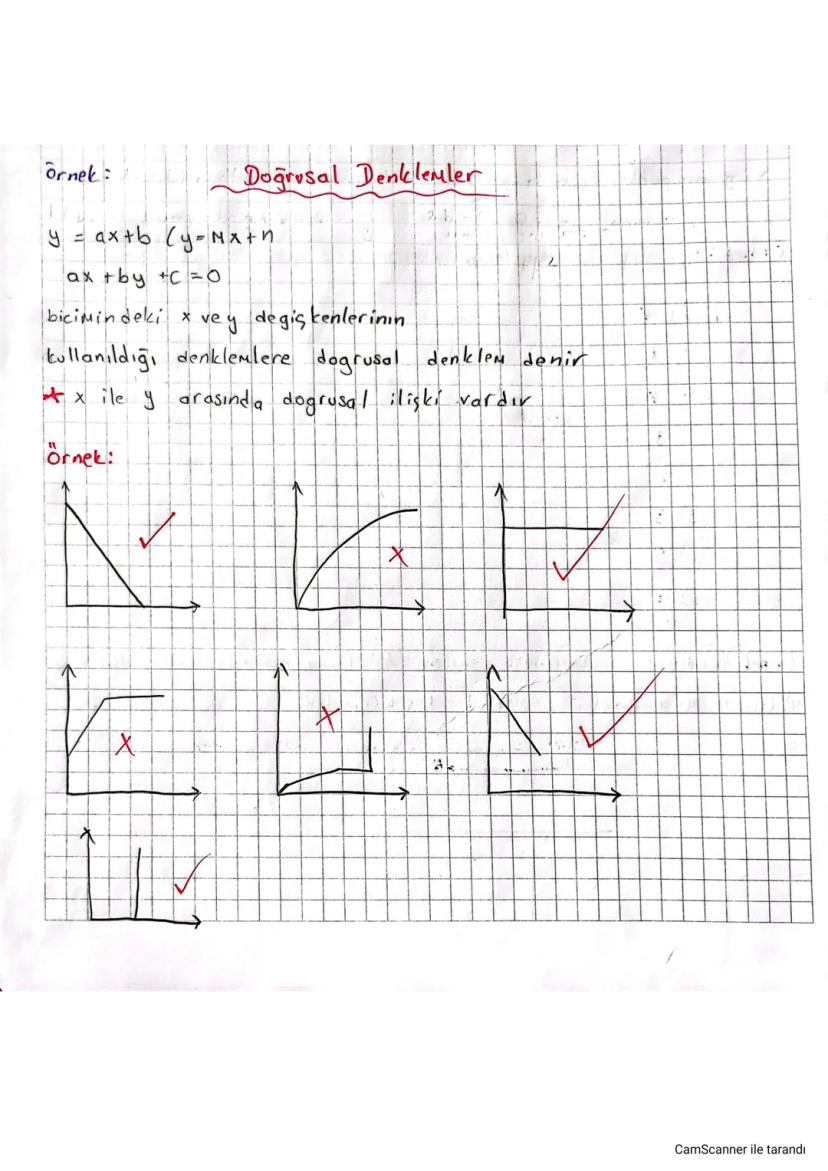 örnek:
Doğrusal Denklemler
y = ax+b (y=Mx+n
ax +by +C =0
bicimindeki x ve y degişkenlerinin
kullanıldığı denklemlere dogrusal denklem denir
* x ile y arasında dogrusal ilişki vardır
Örnek:
CamScanner ile tarandı